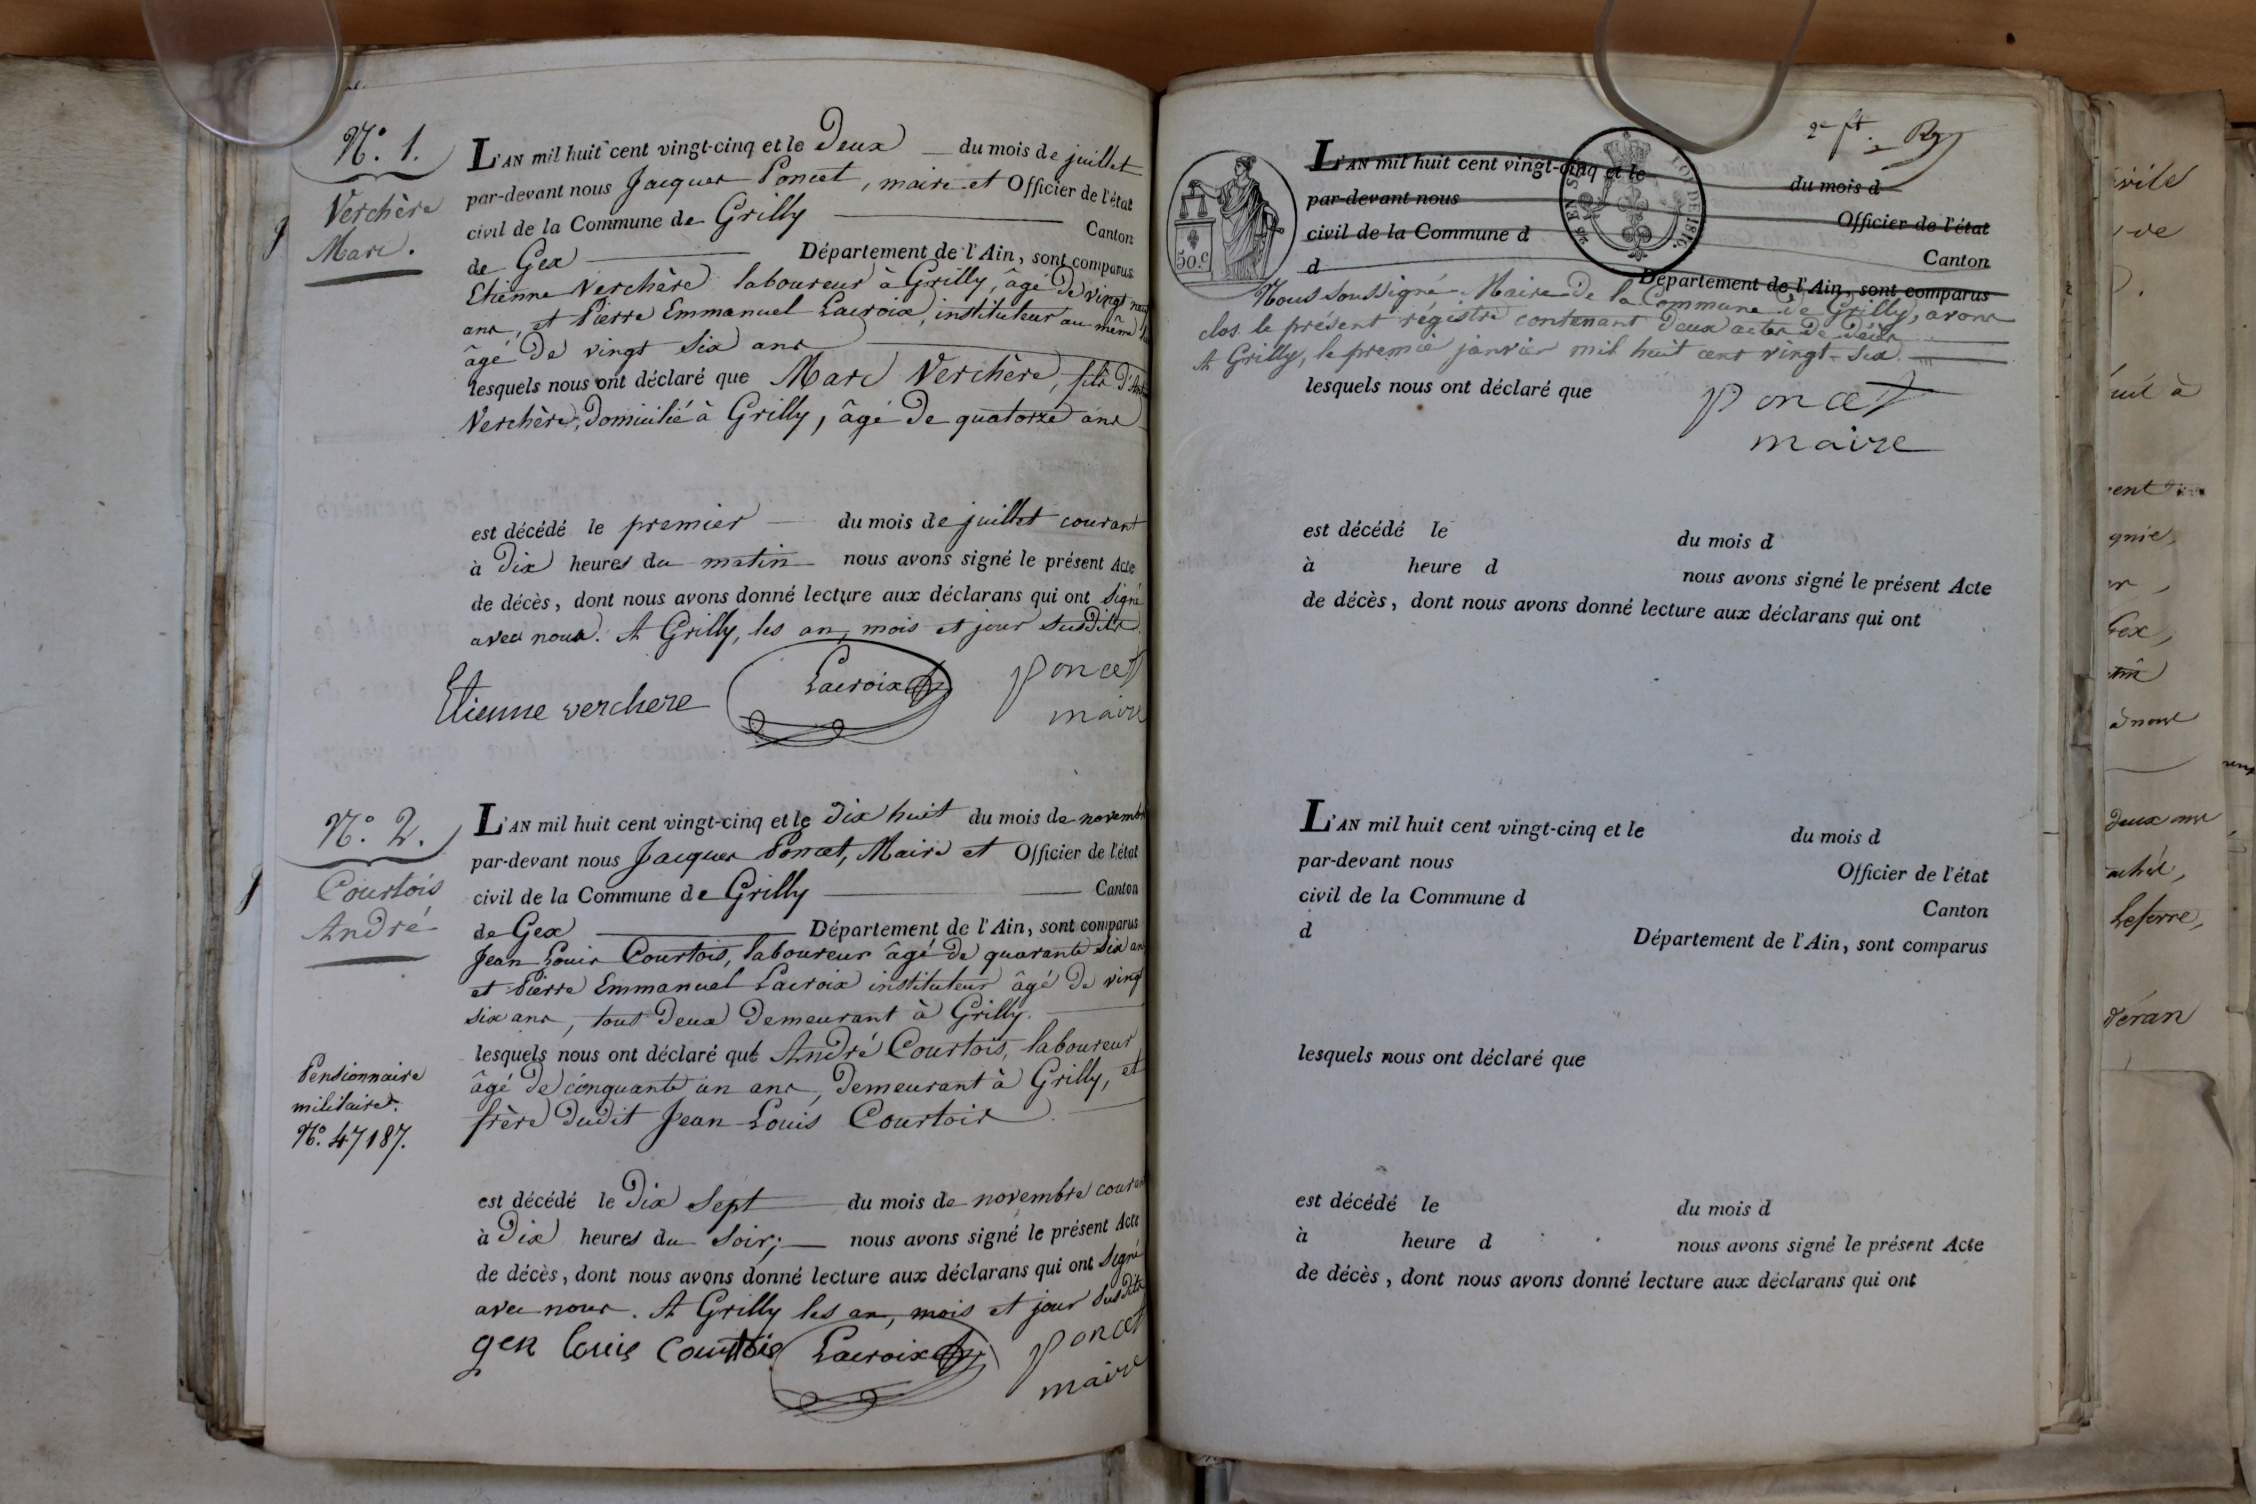 N.º 1.
Verchère
Marc.
L'AN mil huit cent vingt-cinq et le Deux du mois de juillet
par-devant nous Jacques Poncet, maire et Officier de l'état
civil de la Commune de Grilly Canton
de Gex Département de l'Ain, sont comparus
Etienne Verchère laboureur à Grilly, âgé de vingt
ans, et Pierre Emmanuel Lacroix, instituteur au même
âgé de vingt six ans
lesquels nous ont déclaré que Marc Verchère, fils
Verchère, domicilié à Grilly, âgé de quatorze ans
est décédé le premier du mois de juillet courant
à Dix heures du matin nous avons signé le présent Acte
de décès, dont nous avons donné lecture aux déclarans qui ont signé
avec nous. A Grilly, les an, mois et jour susdits.
Etienne verchere Lacroix poncet
maire
N.º 2.
Courtois
André
L'AN mil huit cent vingt-cinq et le dix huit du mois de novembre
par-devant nous Jacques Poncet, Maire et Officier de l'état
civil de la Commune de Grilly Canton
de Gex Département de l'Ain, sont comparus
Jean Louis Courtois, laboureur âgé de quarante six ans
et Pierre Emmanuel Lacroix instituteur âgé de vingt
six ans, tous deux demeurant à Grilly.
lesquels nous ont déclaré que André Courtois, laboureur
âgé de cinquante un ans, demeurant à Grilly, et
frère dudit Jean Louis Courtois
Pensionnaire
militaire.
N.º 47187.
est décédé le Dix sept du mois de novembre courant
à Dix heures du soir; nous avons signé le présent Acte
de décès, dont nous avons donné lecture aux déclarans qui ont signé
avec nous. A Grilly les an, mois et jour susdits
gen louis Courtois Lacroix poncet
maire
2e ft.
L'AN mil huit cent vingt-cinq et le du mois d
par-devant nous Officier de l'état
civil de la Commune d Canton
d Département de l'Ain, sont comparus
50.c
LOI DE 1816.
Nous soussigné Maire de la Commune de Grilly, avons
clos le présent régistre contenant deux actes de décès
A Grilly, le premier janvier mil huit cent vingt-six.
lesquels nous ont déclaré que
poncet
maire
est décédé le du mois d
à heure d nous avons signé le présent Acte
de décès, dont nous avons donné lecture aux déclarans qui ont
L'AN mil huit cent vingt-cinq et le du mois d
par-devant nous Officier de l'état
civil de la Commune d Canton
d Département de l'Ain, sont comparus
lesquels nous ont déclaré que
est décédé le du mois d
à heure d nous avons signé le présent Acte
de décès, dont nous avons donné lecture aux déclarans qui ont